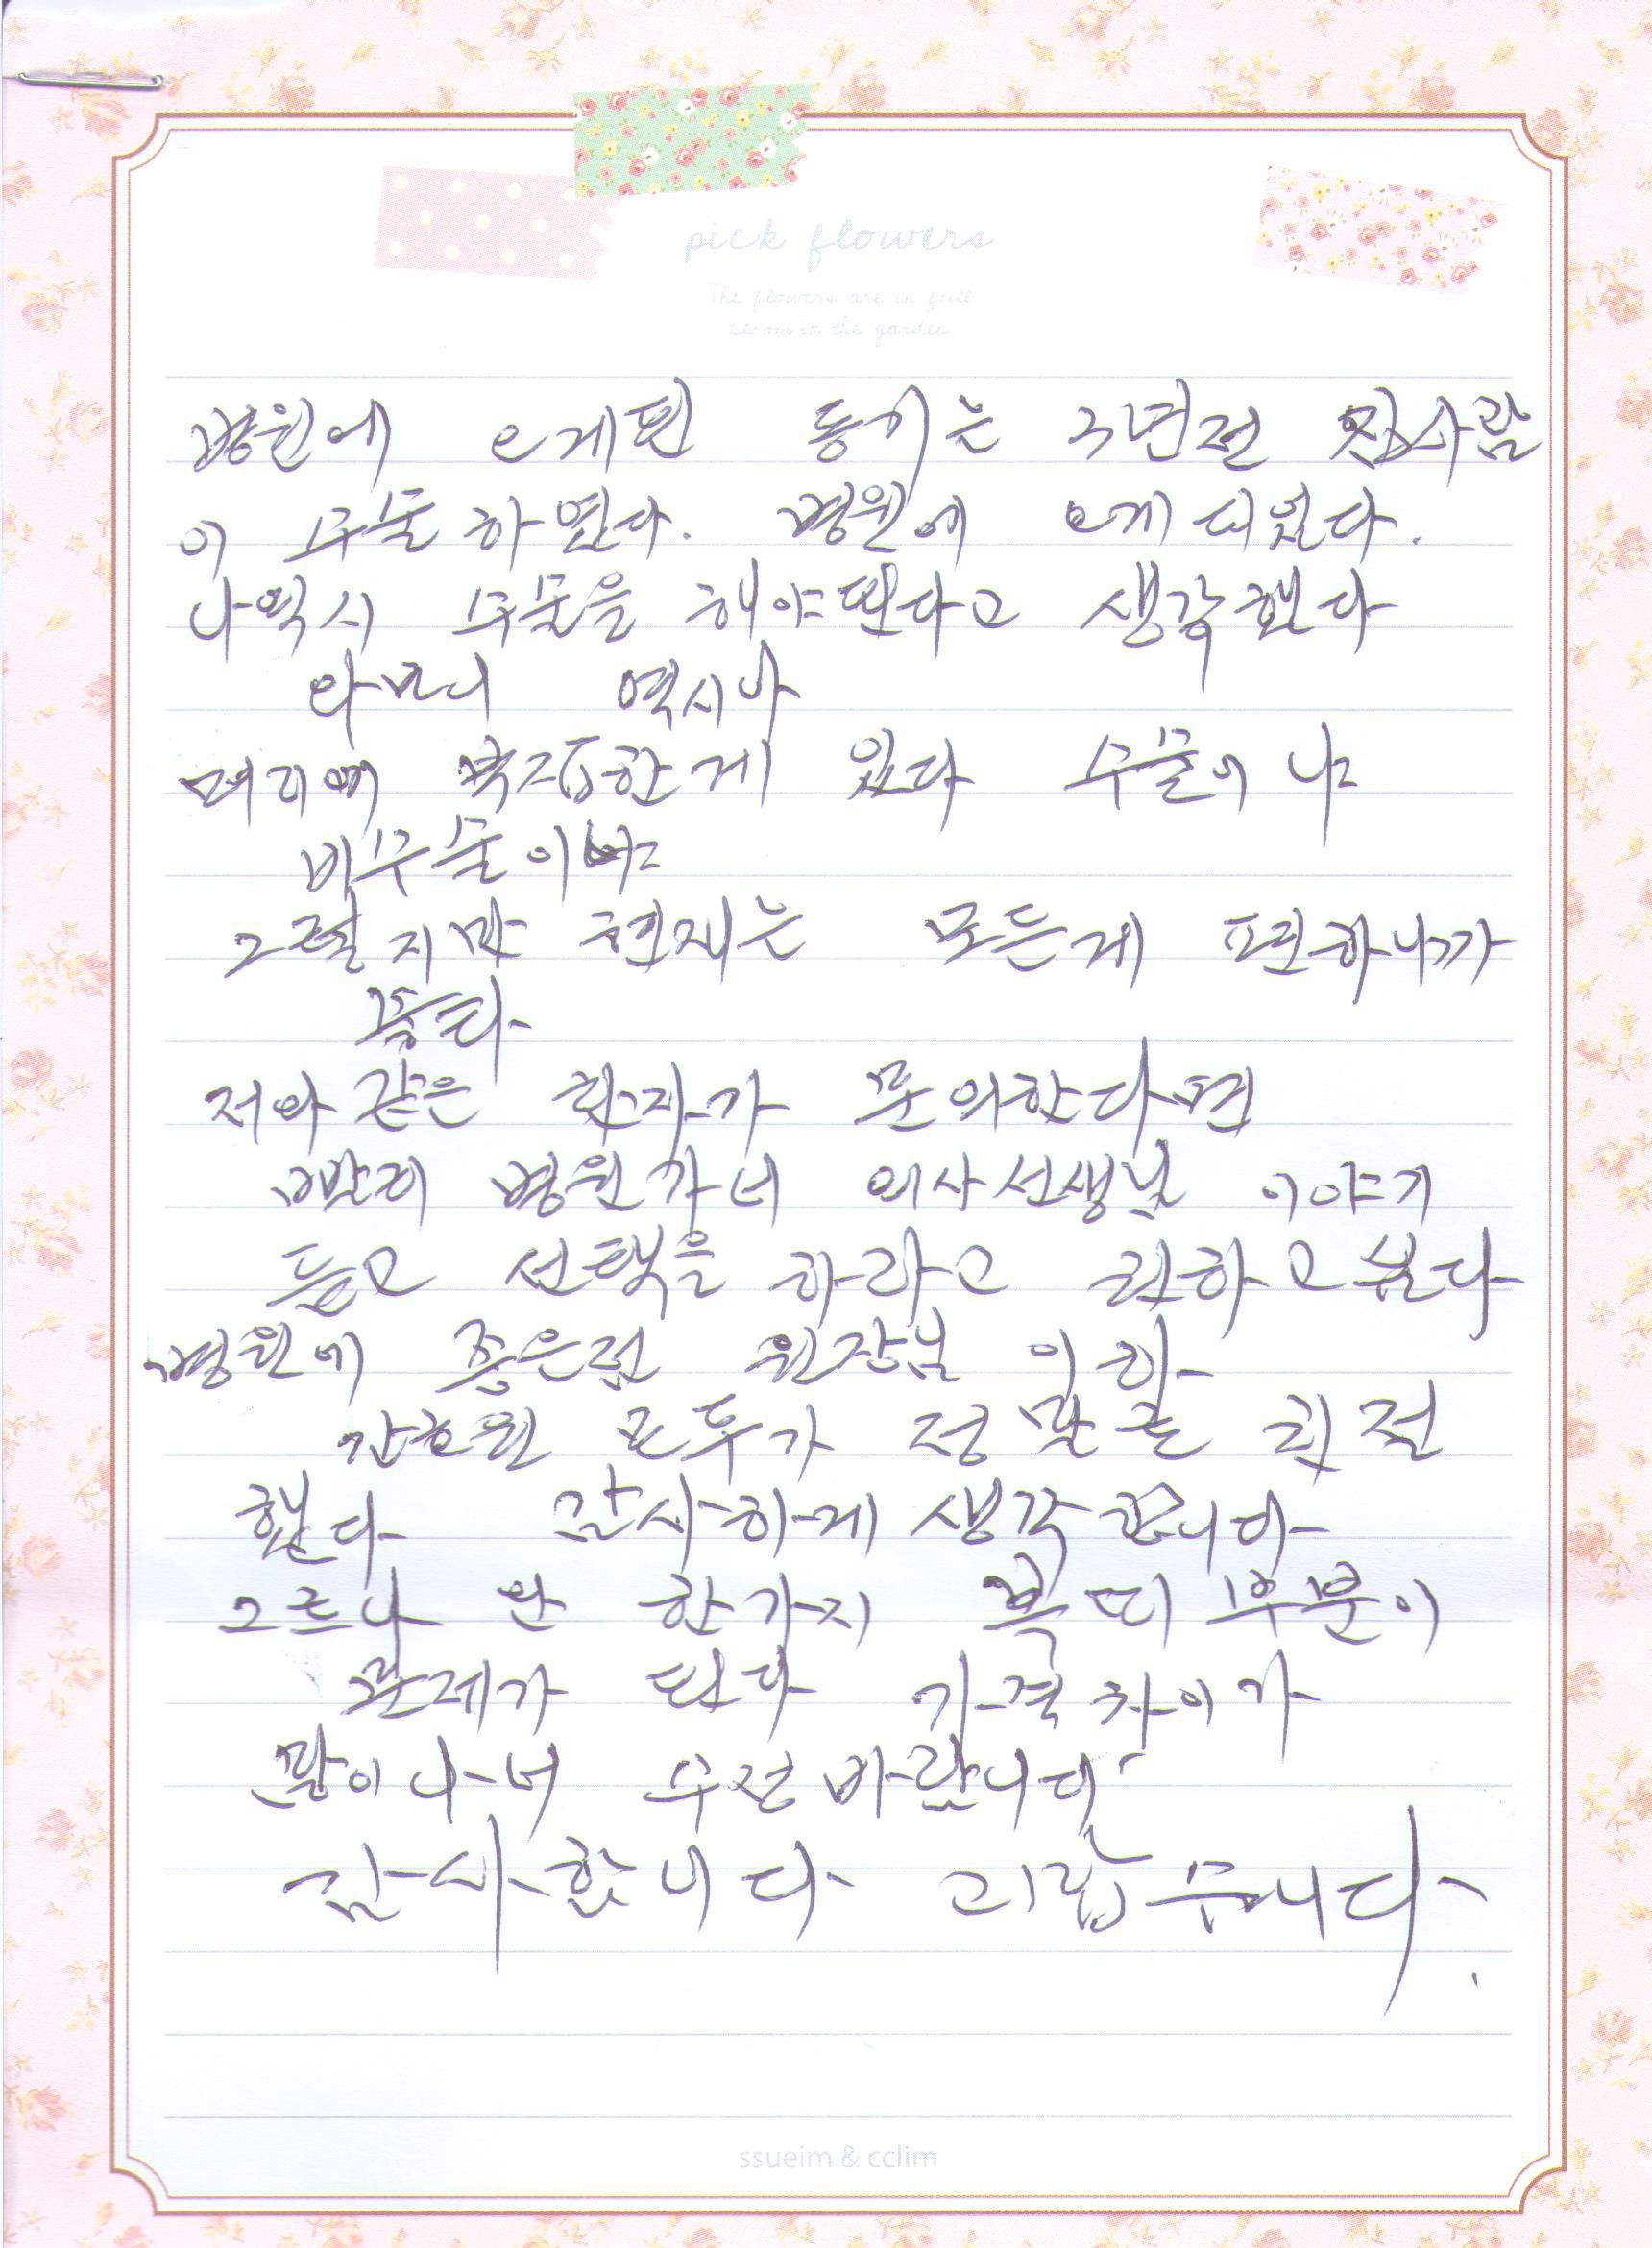 pick flowers
The flowers are in full
bloom in the garden
병원에 오게된 동기는 3년전 집사람
이 수술 하였다. 병원에 오게 되었다.
나역시 수술을 해야 된다고 생각했다
역시나
머리에 복잡한게 있다 수술이냐
비수술이냐
그렇지만 현재는 모든게 편하니까
좋다
저와 같은 환자가 문의한다면
빨리 병원가서 의사선생님 이야기
듣고 선택을 하라고 권하고 싶다
병원에 좋은점 원장님 이하
간호원 모두가 정말로 친절
했다 감사하게 생각합니다
그러나 단 한가지 복띠 부분이
문제가 된다 가격차이가
많이 나니 수정 바랍니다
감사합니다 고맙습니다.
ssueim & cclim